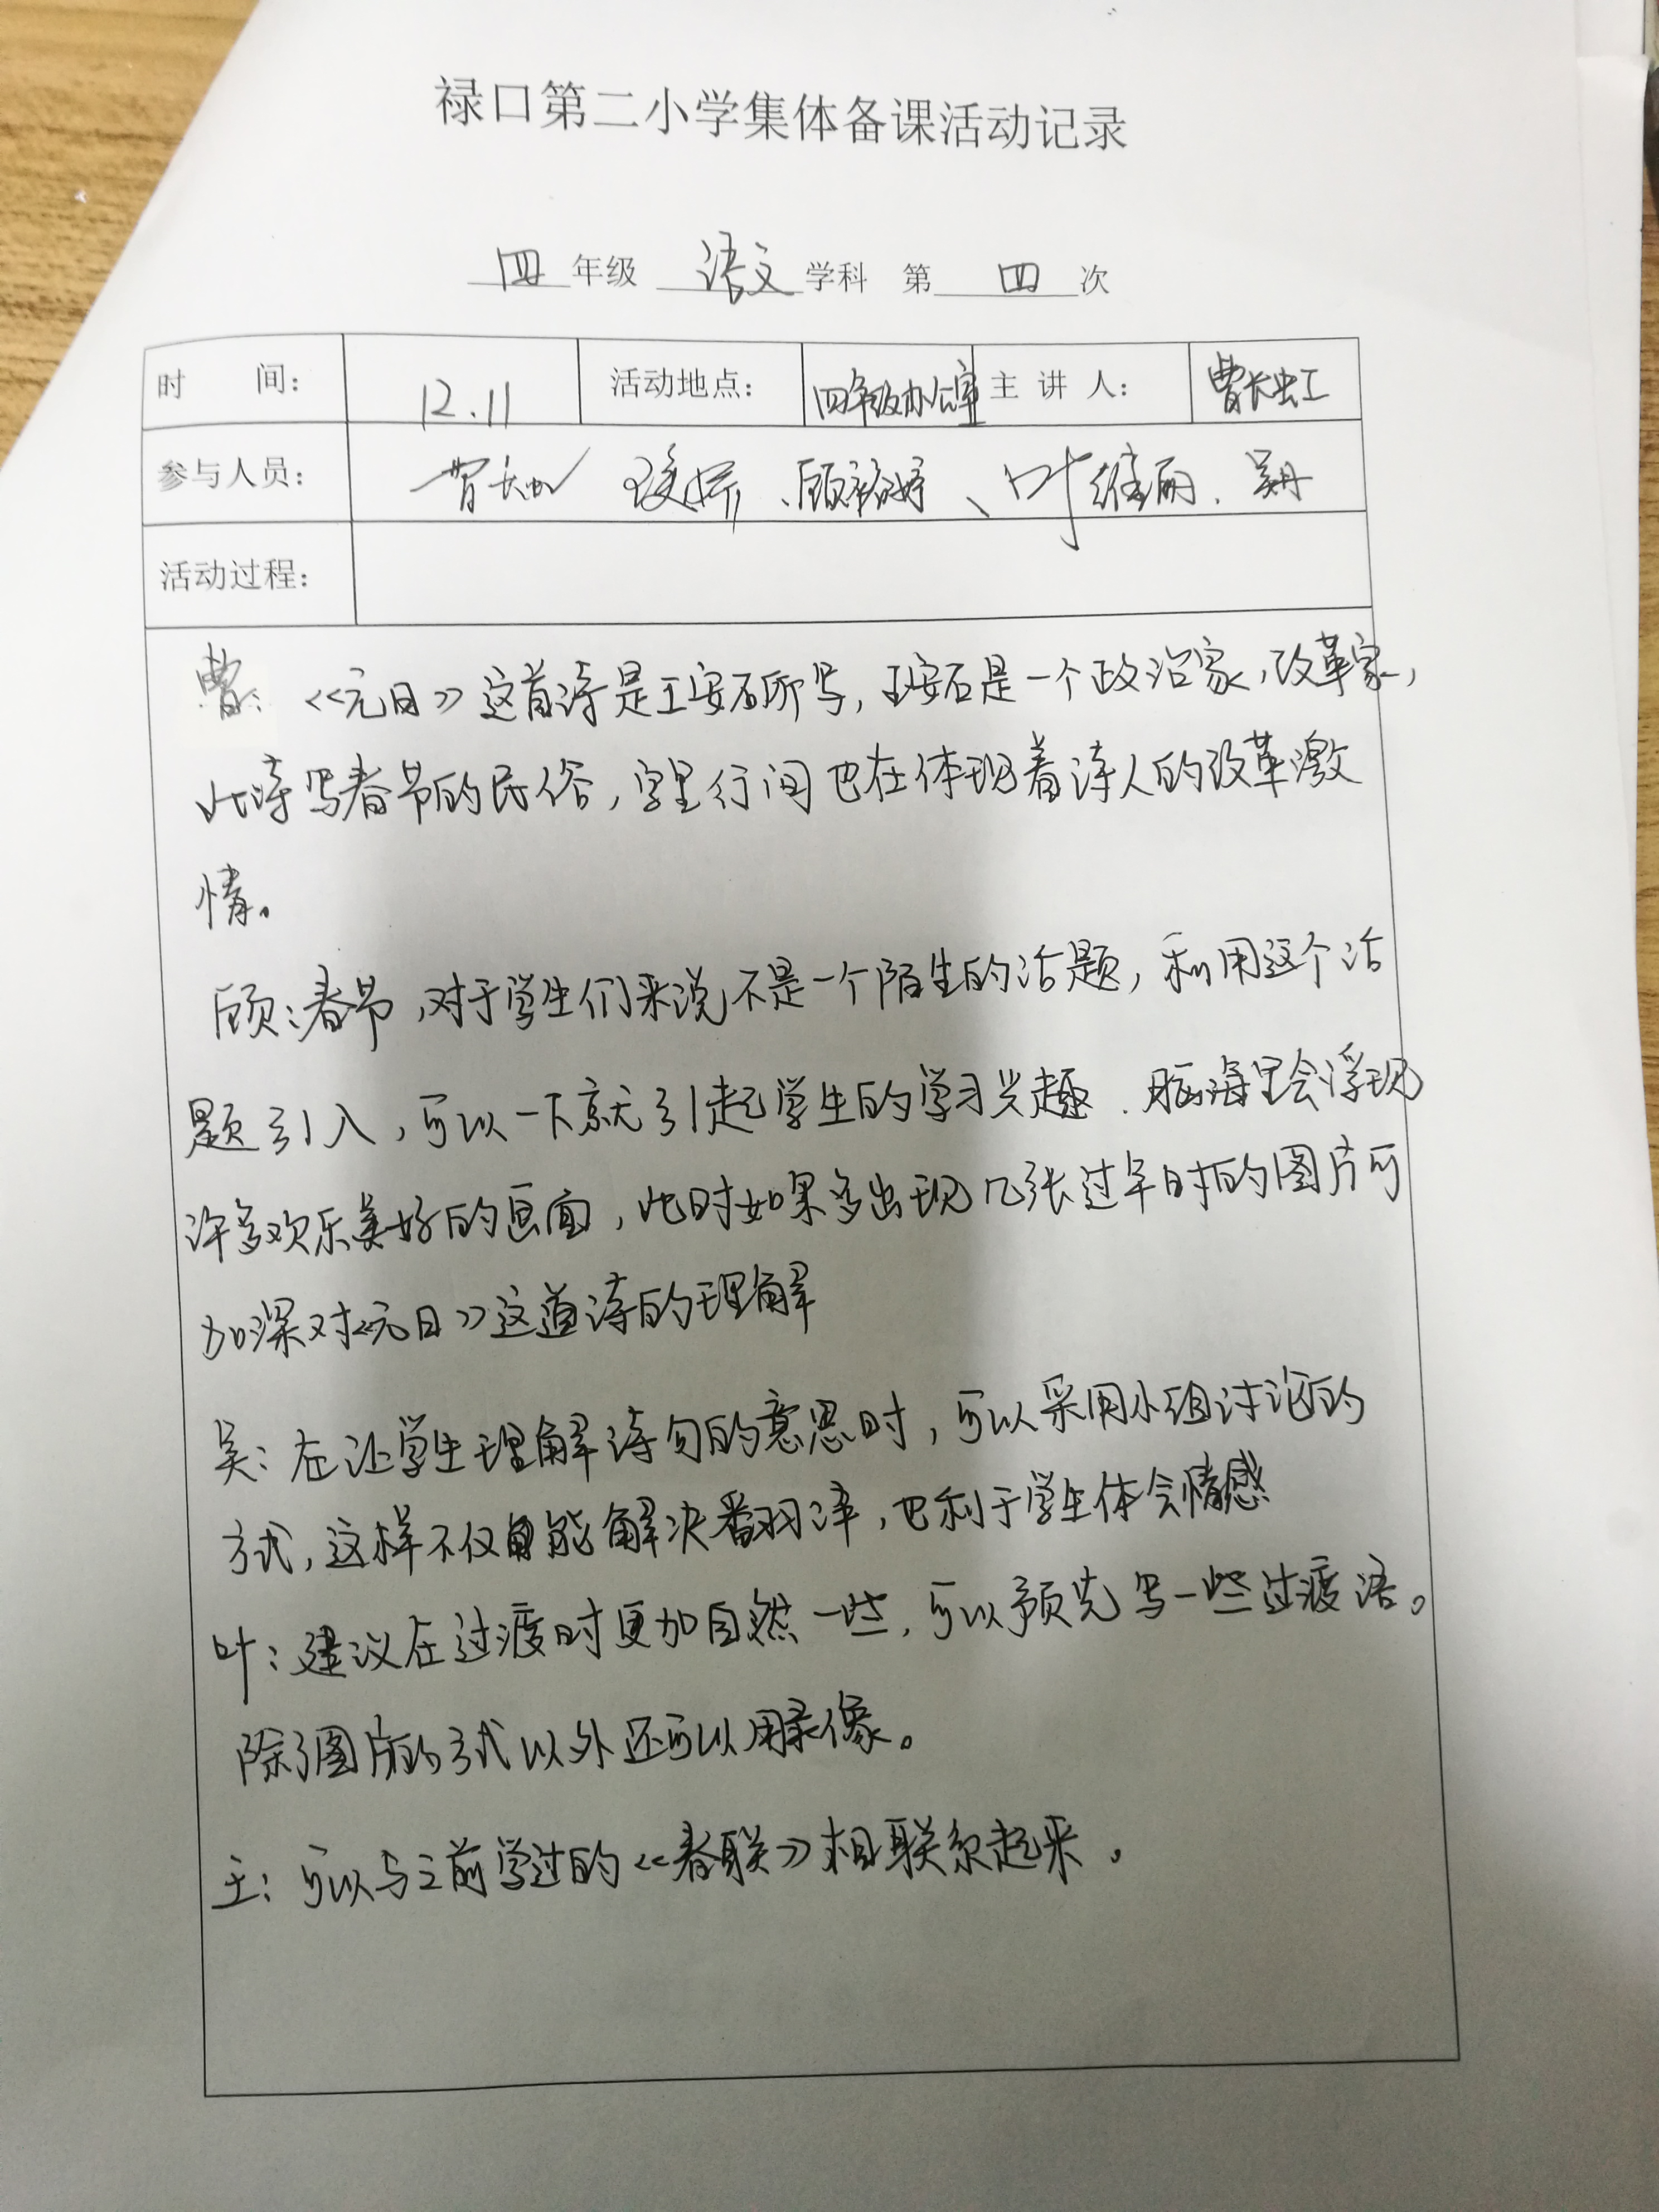 禄口第二小学集体备课活动记录
四 年级 语文 学科 第 四 次
时 间： 12.11 活动地点： 四年级办公室 主 讲 人： 曹长虹
参与人员： 曹长虹 、顾裕婷、叶维丽、吴丹
活动过程：
曹：《元日》这首诗是王安石所写，王安石是一个政治家，改革家，
此诗写春节的民俗，字里行间也在体现着诗人的改革激
情。
顾：春节，对于学生们来说不是一个陌生的话题，利用这个话
题引入，可以一下就引起学生的学习兴趣．脑海里会浮现
许多欢乐美好的画面，此时如果多出现几张过年时的图片可
加深对《元日》这首诗的理解
吴：在让学生理解诗句的意思时，可以采用小组讨论的
方式，这样不仅能解决翻译，也利于学生体会情感
叶：建议在过渡时更加自然一些，可以预先写一些过渡语。
除了图片的方式以外还可以用录像。
王：可以与之前学过的《春联》相联系起来。